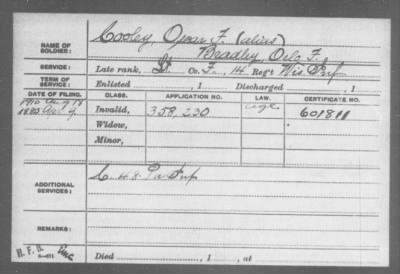 NAME OF SOLDIER: Cooley, Oscar F. (alias)
Bradley, Orlo F.
SERVICE: Late rank, Co. F., 14 Reg't Wis Inf
TERM OF SERVICE: Enlisted , 1 Discharged , 1
DATE OF FILING. CLASS. APPLICATION NO. LAW. CERTIFICATE NO.
1910 Aug 18 age
1880 Invalid, 358,230 601811
Widow,
Minor,
ADDITIONAL SERVICES: C. 48 Pa Inf
REMARKS:
Died , 1 , at